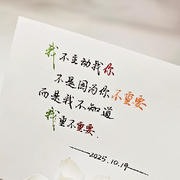 我不主动我你
不是因为你不重要
而是我不知道
我重不重要.
——2025.10.19——